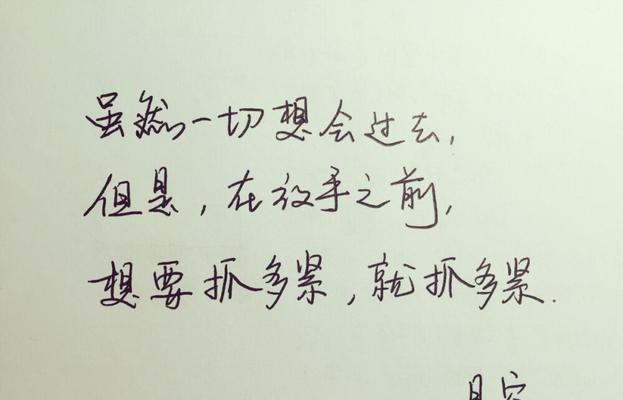 虽然一切想会过去,
但是,在放手之前,
想要抓多紧,就抓多紧.